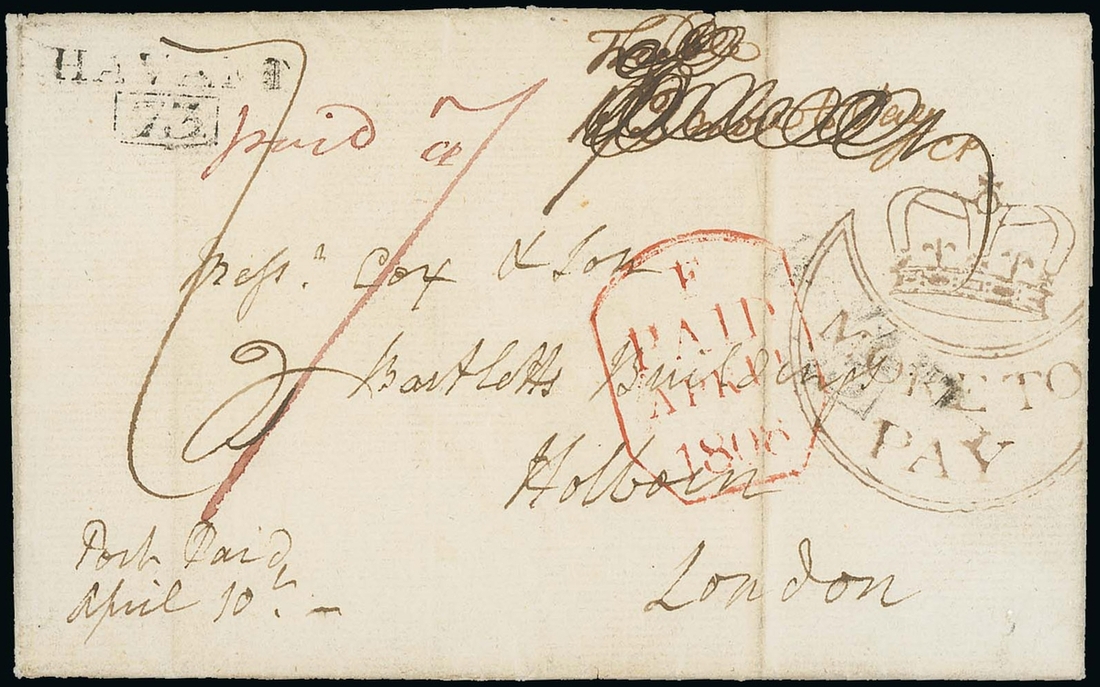 HAVANT
73
paid 7
Mess.rs Cox & Son
2
Bartletts Buildings
Holborn
London
Post Paid
April 10th. –
F
PAID
APR 11
1806
MORE TO
PAY